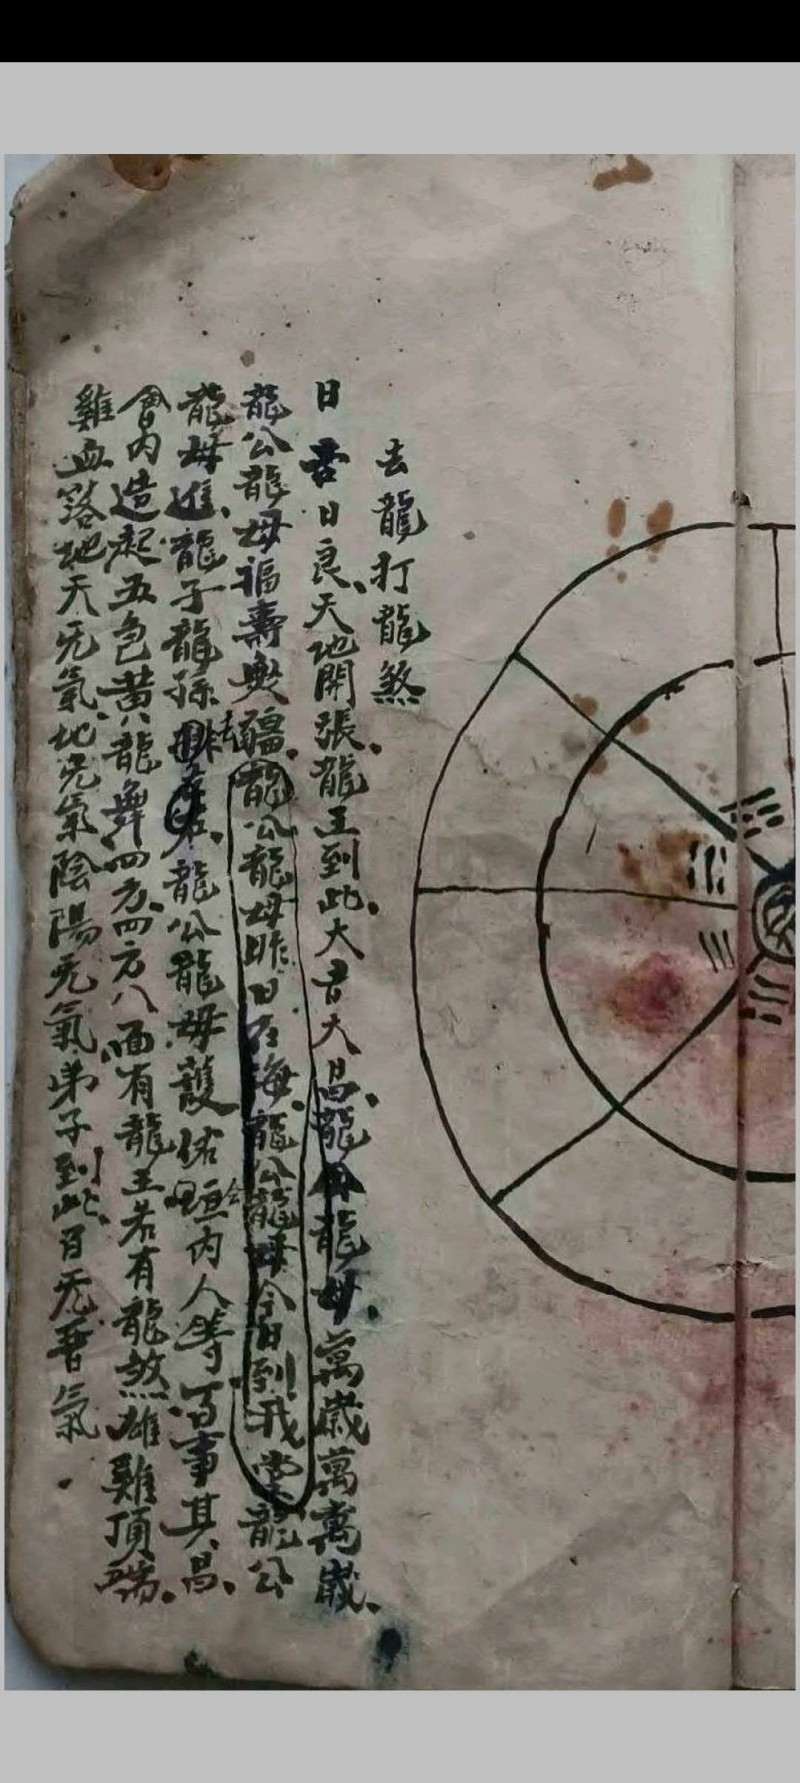 去龍打龍煞
日吉日良、天地開張、龍王到此、大吉大昌、龍公龍母、萬歲萬萬歲、
龍公龍母福壽無疆、龍公龍母昨日在海、龍公龍母今日到我堂龍公
龍母進、龍子龍孫 去 龍公龍母護佑 会 内人等、百事其昌、
會内造起五色黄龍舞四方、四方八面有龍王若有龍煞雄雞頂端、
雞血落地天无氣、地无氣陰陽无氣、弟子到此、百无 氣